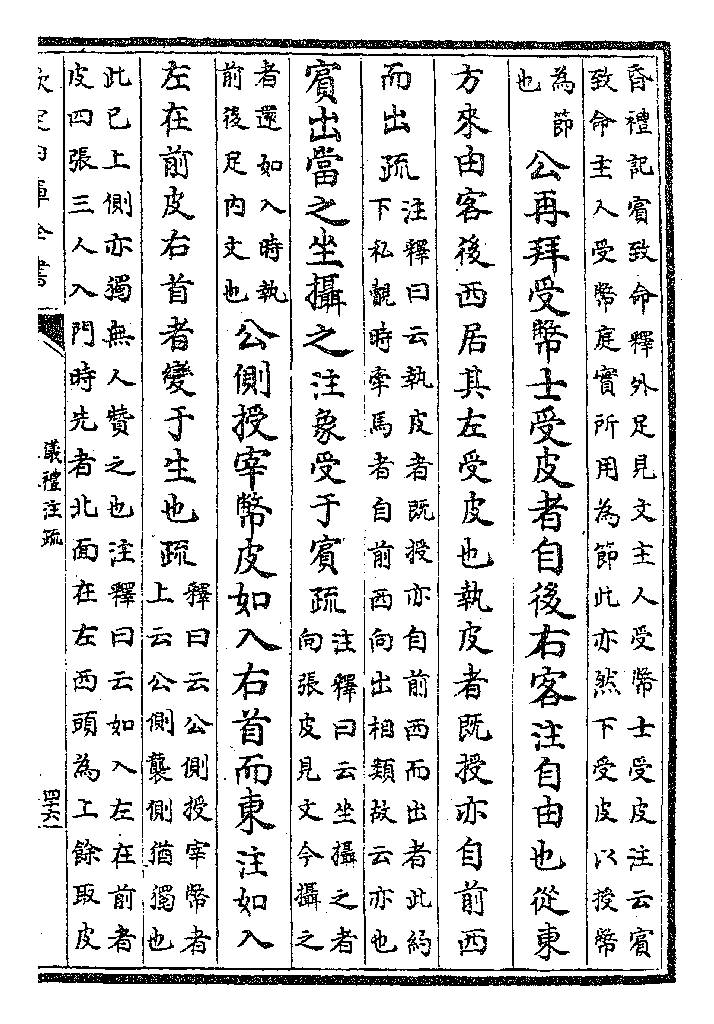 昏禮記賓致命釋外足見文主人受幣士受皮注云賓
致命主人受幣庭實所用為節此亦然下受皮以授幣
為節
也
公再拜受幣士受皮者自後右客注自由也從東
方來由客後西居其左受皮也執皮者既授亦自前西
而出疏
注釋曰云執皮者既授亦自前西而出者此約
下私覿時牽馬者自前西向出相類故云亦也
賓出當之坐攝之注象受于賓疏
注釋曰云坐攝之者
向張皮見文今攝之
者還如入時執
前後足内文也
公側授宰幣皮如入右首而東注如入
左在前皮右首者變于生也疏
釋曰云公側授宰幣者
上云公側襲側猶獨也
此已上側亦獨無人贊之也注釋曰云如入左在前者
皮四張三人入門時先者北面在左西頭為上餘取皮
欽定四庫全書
儀禮注疏
四十六